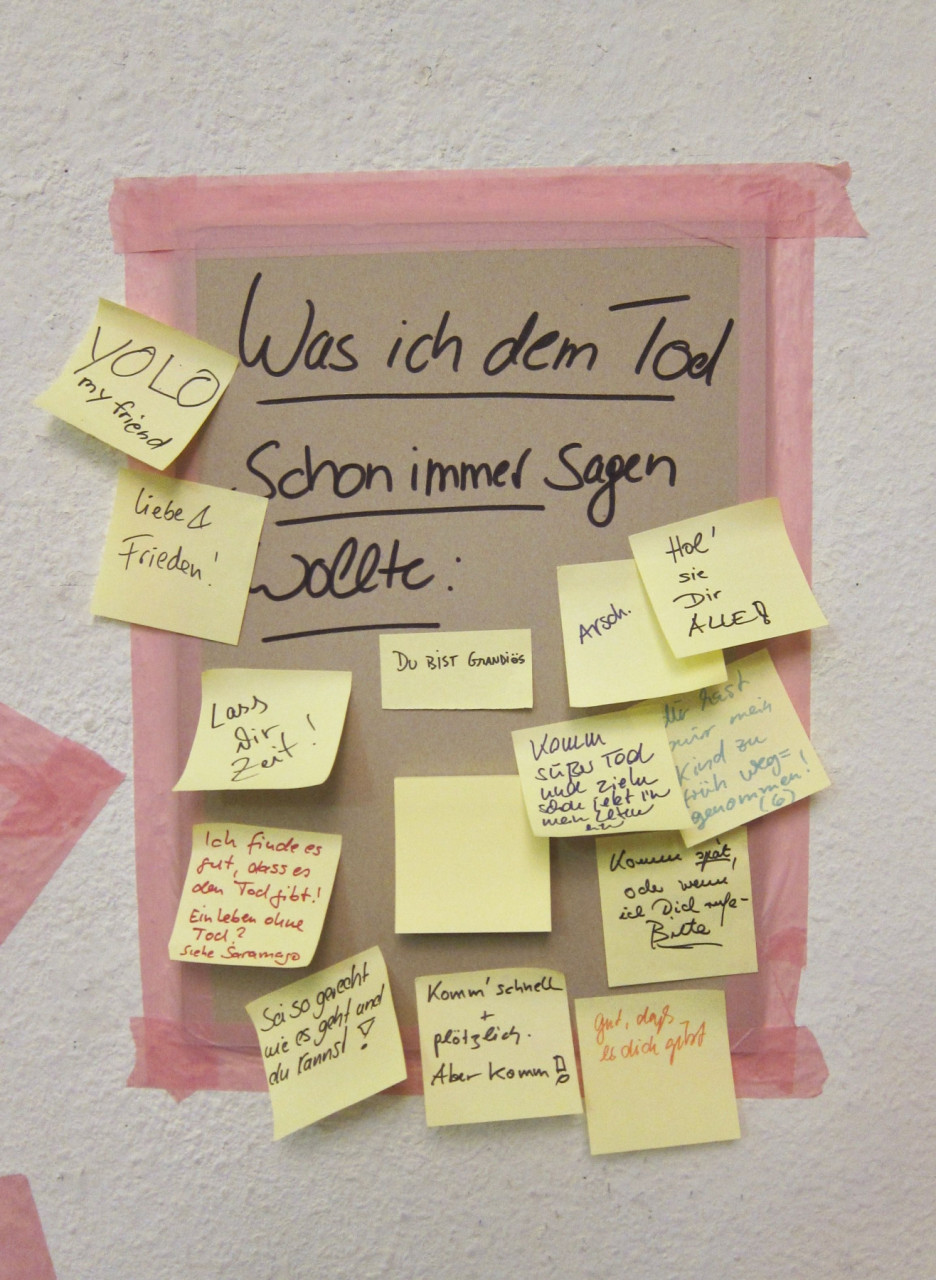 Was ich dem Tod
Schon immer sagen
wollte:
YOLO
my friend
Liebe &
Frieden!
Hol'
sie
Dir
ALLE!
Arsch.
DU BIST GRANDIÖS
Lass
Dir
Zeit!
Komm
süßer Tod
und zieh
schon jetzt in
mein Leben
ein
Du hast
mir mein
Kind zu
früh weg=
genommen!
(6)
Ich finde es
gut, dass es
den Tod gibt!
Ein Leben ohne
Tod?
siehe Saramago
Komm spät,
oder wenn
ich Dich rufe-
Bitte
Sei so gerecht
wie es geht und
du kannst!
Komm' schnell
+
plötzlich.
Aber Komm!
gut, daß
es dich gibt